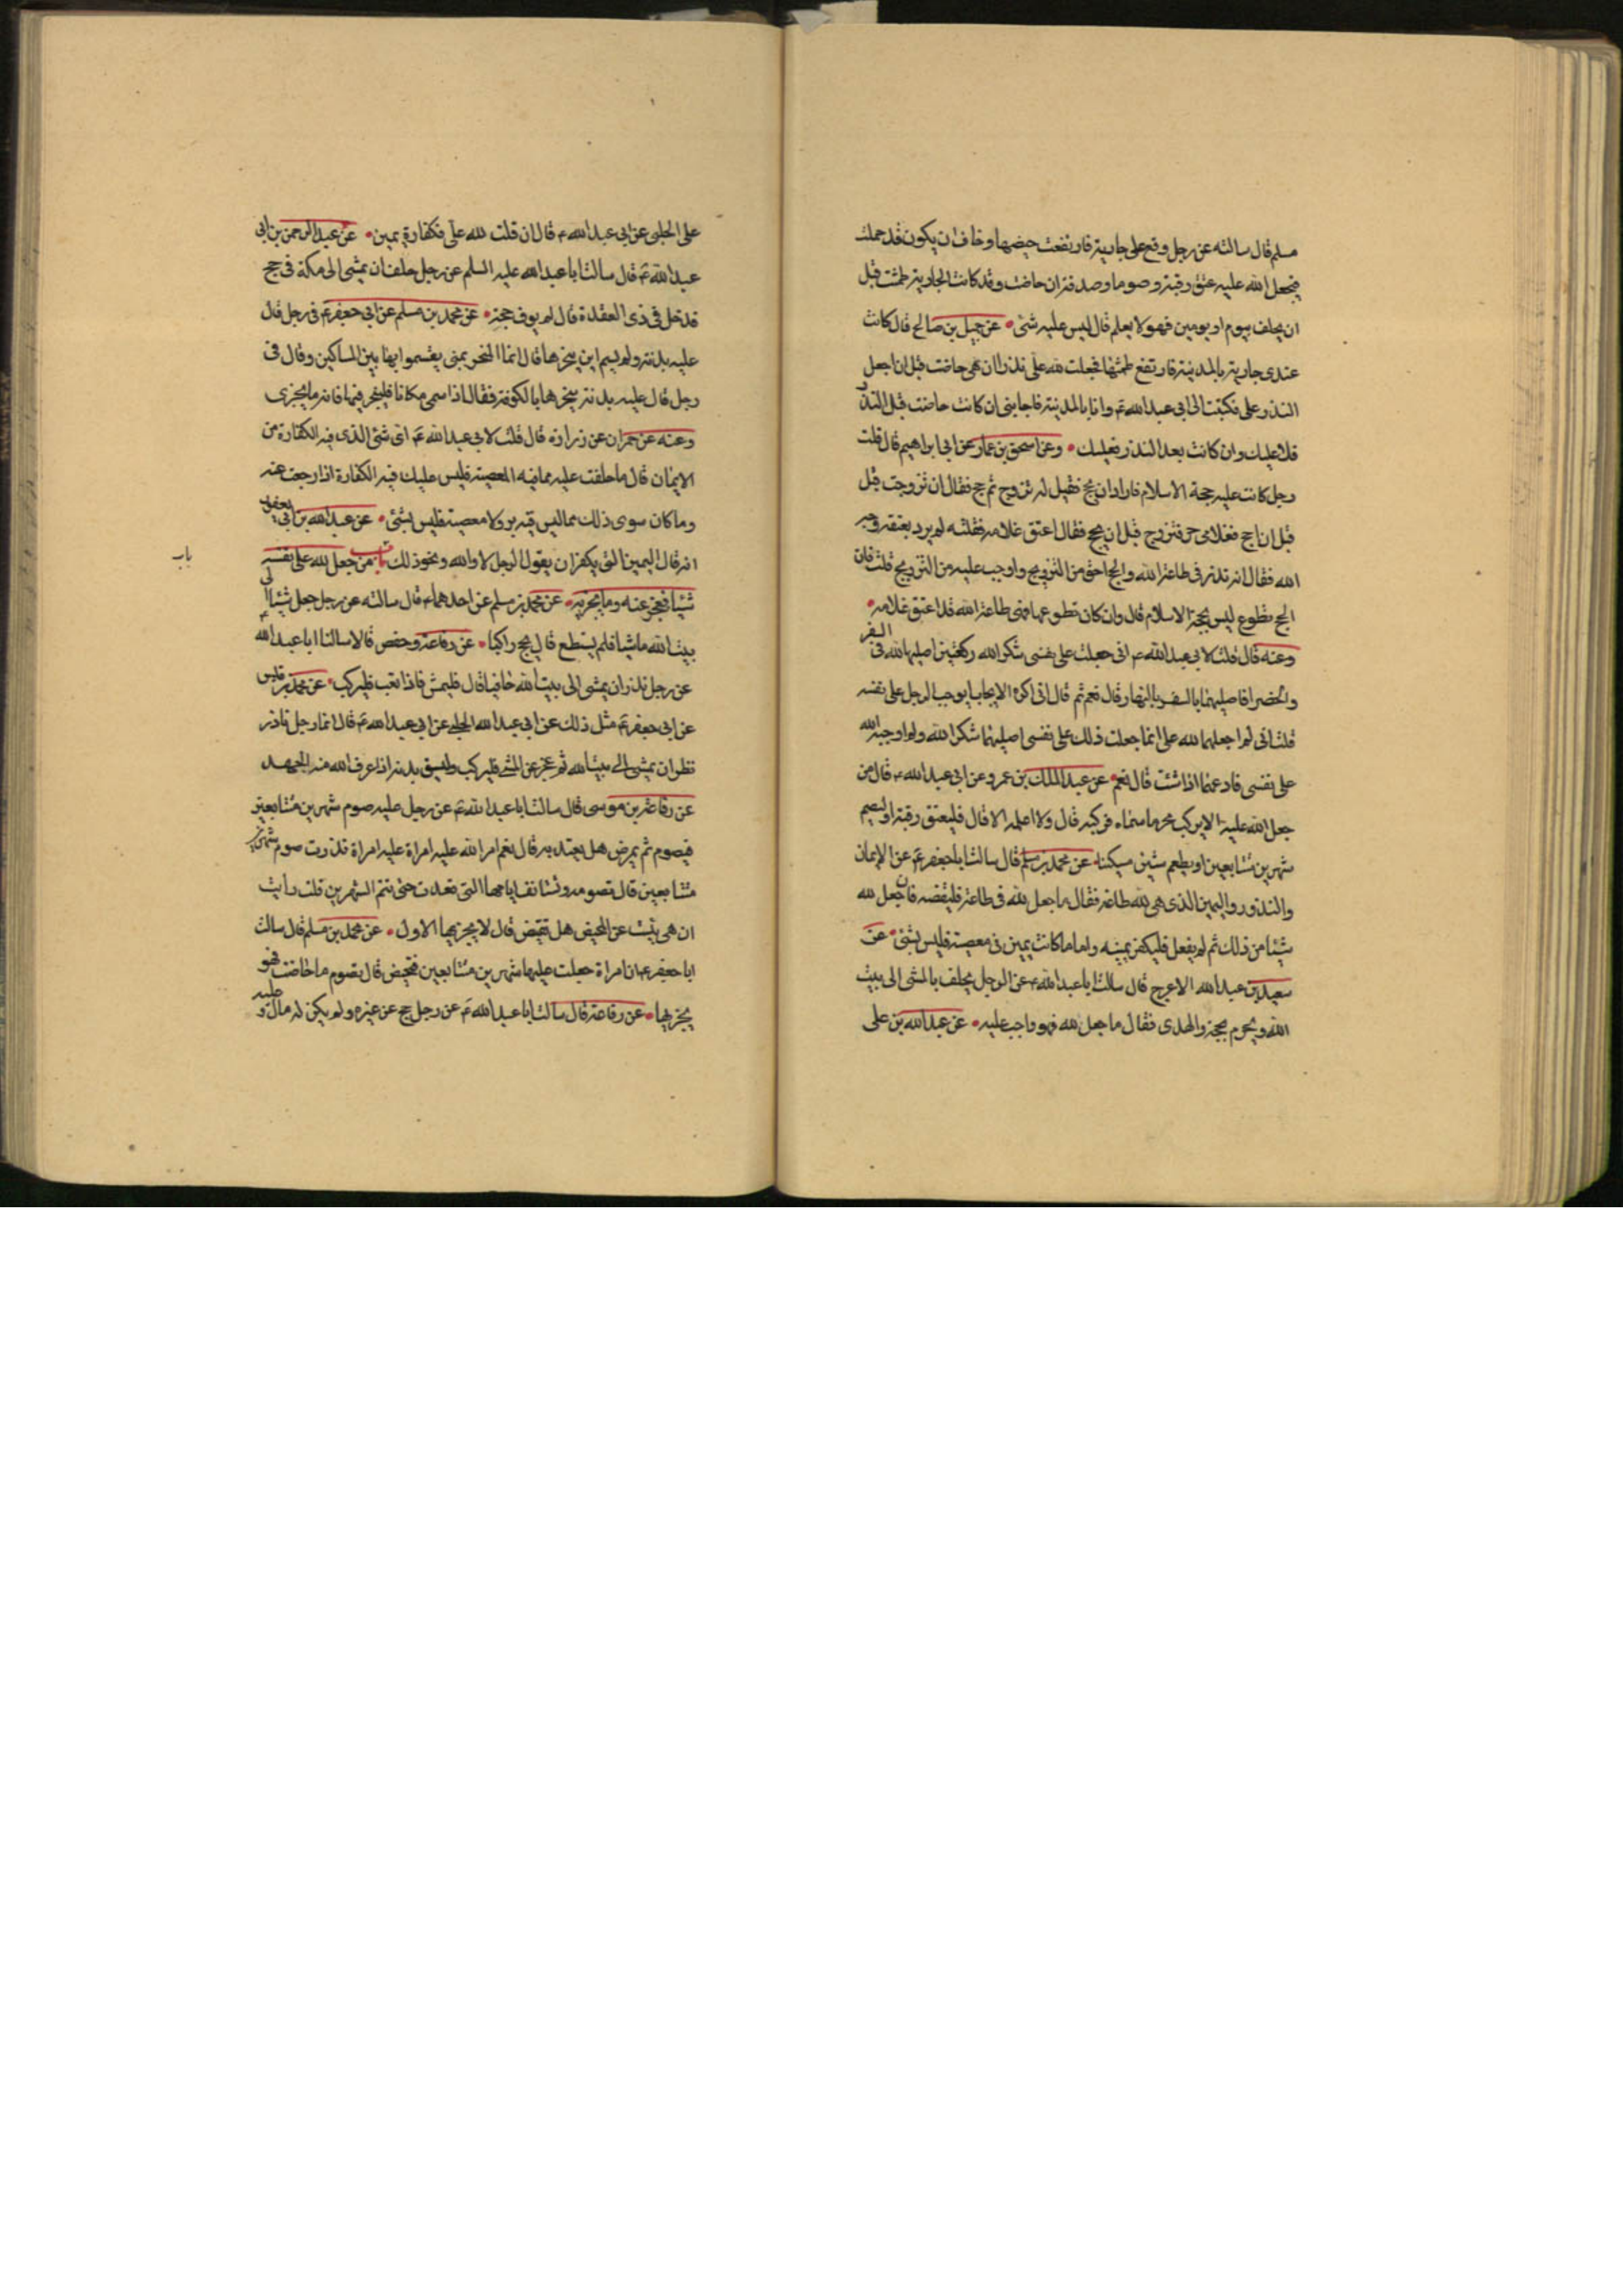 مسلم قال سالته عن رجل وقع على جارية فارتفعت حيضها وخاف ان يكون قد حملت
فجعل الله عليه عتق رقبة وصوما وصدقة ان حاضت وقد كانت الجارية طمثت قبل
ان يحلف بيوم او يومين فهو لا يعلم قال ليس عليه شئ عن جميل بن صالح قال كانت
عندى جارية بالمدينة فارتفع طمثها فجعلت لله على نذرا ان هى حاضت قبل ان اجعل
النذر على فكتبت الى ابى عبد الله ع وانا بالمدينة فاجابنى ان كانت حاضت قبل النذر
فلا عليك وان كانت بعد النذر فعليك وعن اسحق بن عمار عن ابى ابراهيم قال قلت
رجل كانت عليه حجة الاسلام فاراد ان يحج فقيل له تزوج ثم حج فقال ان تزوجت قبل
قبل ان احج فغلامى حر فتزوج قبل ان يحج فقال اعتق غلامه فقلت له لم يرد بعتقه وجه
الله فقال انه نذر فى طاعة الله والحج احق من التزويج واوجب عليه من التزويج قلت فان
الحج تطوع ليس بحجة الاسلام قال وان كان تطوعا فهى طاعة الله قد اعتق غلامه
وعنه قال قلت لابى عبد الله ع انى جعلت على نفسى شكرا لله ركعتين اصليها لله فى السفر
والحضر افاصليهما بالسفر بالنهار قال نعم ثم قال انى اكره الايجاب يوجب الرجل على نفسه
قلت انى لم اجعلهما لله على انما جعلت ذلك على نفسى اصليهما شكرا لله ولم اوجبه الله
على نفسى فادعهما اذا شئت قال نعم عن عبد الملك بن عمرو عن ابى عبد الله ع قال من
جعل الله عليه الا يركب محرما سماه فركبه قال ولا اعلمه الا قال فليعتق رقبة او ليصم
شهرين متتابعين او يطعم ستين مسكينا عن محمد بن مسلم قال سالت ابا جعفر ع عن الايمان
والنذور واليمين الذى هى لله طاعة فقال ما جعل لله فى طاعة فليقضه فان جعل لله
شيئا من ذلك ثم لم يفعل فليكفر يمينه واما ما كانت يمين فى معصية فليس بشئ عن
سعيد بن عبد الله الاعرج قال سالت ابا عبد الله ع عن الرجل يحلف بالمشى الى بيت
الله ويحرم بحجة والهدى فقال ما جعل لله فهو واجب عليه عن عبد الله بن على
على الحلبى عن ابى عبد الله ع قال ان قلت لله على فكفارة يمين عن عبد الرحمن بن ابى
عبد الله ع قال سالت ابا عبد الله عليه السلم عن رجل حلف ان يمشى الى مكة فى حج
فدخل فى ذى القعدة قال لم يوف حجة عن محمد بن مسلم عن ابى جعفر ع فى رجل قال
عليه بدنة ولم يسم اين ينحرها قال انما النحر بمنى يقسموا بها بين المساكين وقال فى
رجل قال عليه بدنة ينحرها بالكوفة فقال اذا سمى مكانا فلينحر فيها فانه ما يجزى
وعنه عن حمران عن زرارة قال قلت لابى عبد الله ع اى شئ الذى فيه الكفارة من
الايمان قال ما حلفت عليه مما فيه المعصية فليس عليك فيه الكفارة اذا رجعت عنه
وما كان سوى ذلك مما ليس فيه بر ولا معصية فليس بشئ عن عبد الله بن ابى يعفور
انه قال اليمين التى يكفر ان يقول الرجل لا والله ونحو ذلك باب من جعل لله على نفسه
باب
شيئا فعجز عنه وما يجزيه عن محمد بن مسلم عن احدهما ع قال سالته عن رجل جعل شيئا الى
بيت الله ماشيا فلم يستطع قال يحج راكبا عن رفاعة وحفص قالا سالنا ابا عبد الله
عن رجل نذر ان يمشى الى بيت الله حافيا قال فليمش فاذا تعب فليركب عن محمد بن قيس
عن ابى جعفر ع مثل ذلك عن ابى عبد الله الحلبى عن ابى عبد الله ع قال انما رجل نذر
نظر ان يمشى الى بيت الله ثم عجز عن المشى فليركب وليسق بدنة اذا عرف الله منه الجهد
عن رفاعة بن موسى قال سالت ابا عبد الله ع عن رجل عليه صوم شهرين متتابعين
فيصوم ثم يمرض هل يعتد به قال نعم امر الله عليه امراة عليه امراة نذرت صوم شهرين
متتابعين قال تصومه وتستانف ايامها التى قعدت حتى تتم الشهرين قلت رايت
ان هى يئست عن المحيض هل تقيض قال لا يجزيها الاول عن محمد بن مسلم قال سالت
ابا جعفر ع ان امراة جعلت عليها شهرين متتابعين فتحيض قال تصوم ما حاضت فهو
يجزيها عن رفاعة قال سالت ابا عبد الله ع عن رجل حج عن غيره ولم يكن له مال و عليه